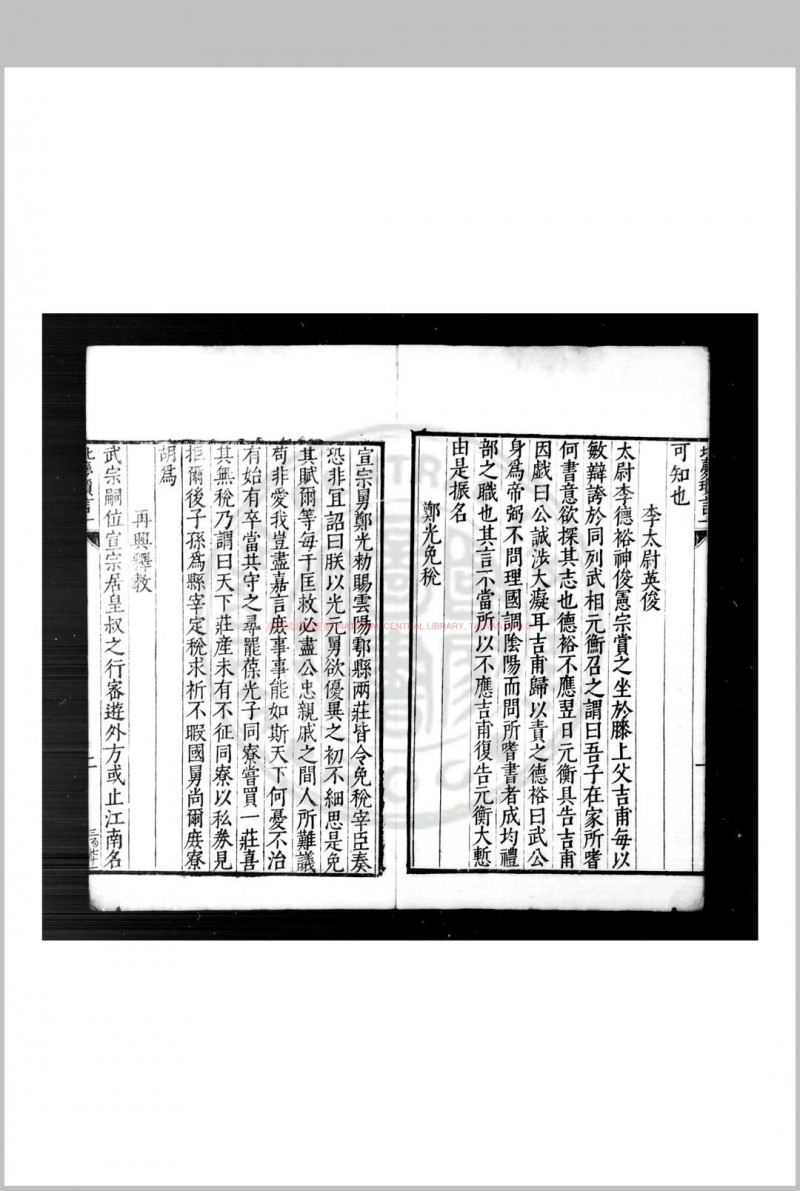 可知也
李太尉英俊
太尉李德裕神俊憲宗賞之坐於膝上父吉甫每以
敏辯誇於同列武相元衡召之謂曰吾子在家所嗜
何書意欲探其志也德裕不應翌日元衡具告吉甫
因戲曰公誠涉大癡耳吉甫歸以責之德裕曰武公
身爲帝弼不問理國調陰陽而問所嗜書者成均禮
部之職也其言不當所以不應吉甫復告元衡大慙
由是振名
鄭光免稅
宣宗舅鄭光勅賜雲陽鄠縣兩莊皆令免稅宰臣奏
恐非宜詔曰朕以光元舅欲優異之初不細思是免
其賦爾等每于匡救必盡公忠親戚之間人所難議
苟非愛我豈盡嘉言庶事事能如斯天下何憂不治
有始有卒當共守之尋罷葆光子同寮嘗買一莊喜
其無稅乃謂曰天下莊産未有不征同寮以私劵見
拒爾後子孫爲縣宰定稅求祈不暇國舅尚爾庶寮
胡爲
再興釋教
武宗嗣位宣宗居皇叔之行密遊外方或止江南名
北夢瑣言一